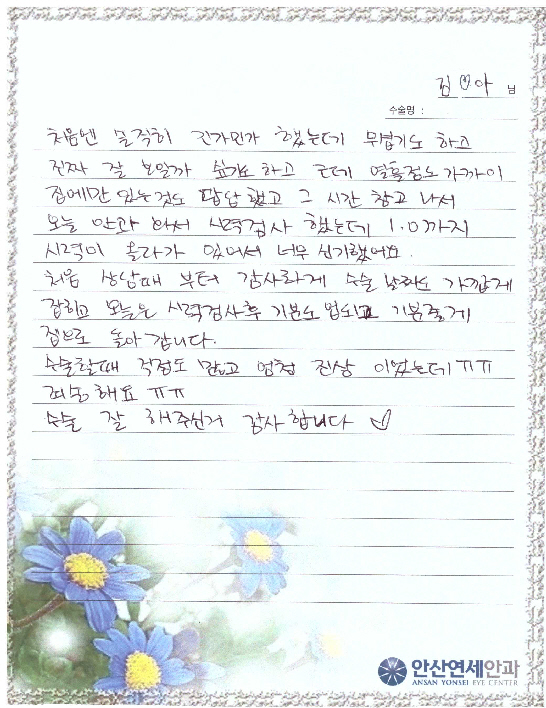 김♡아 님
수술명 :
처음엔 솔직히 긴가민가 했는데 무섭기도 하고
진짜 잘 보일까 싶기도 하고 근데 열흘정도 가까이
집에만 있는것도 답답했고 그 시간 참고 나서
오늘 안과 와서 시력검사 했는데 1.0까지
시력이 올라가 있어서 너무 신기했어요.
처음 상담때 부터 감사하게 수술 날짜도 가깝게
잡히고 오늘은 시력검사후 기분도 업되고 기분좋게
집으로 돌아 갑니다.
수술할때 걱정도 많고 엄청 진상 이었는데 ㅠㅠ
죄송해요 ㅠㅠ
수술 잘 해주신거 감사합니다 ♡
안산연세안과
ANSAN YONSEI EYE CENTER